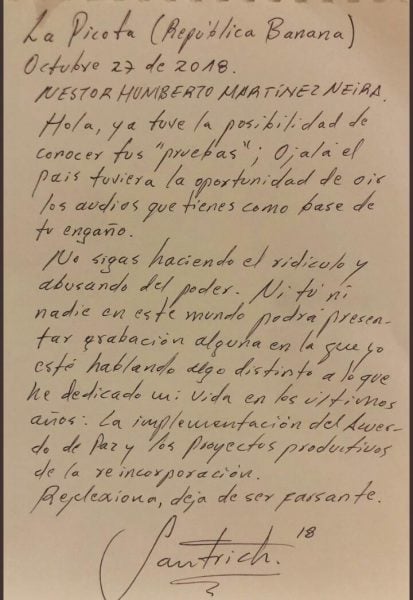 La Picota (República Banana)
Octubre 27 de 2018.
NESTOR HUMBERTO MARTÍNEZ NEIRA.
Hola, ya tuve la posibilidad de
conocer tus "pruebas"; Ojalá el
país tuviera la oportunidad de oir
los audios que tienes como base de
tu engaño.
No sigas haciendo el ridículo y
abusando del poder. Ni tú ni
nadie en este mundo podrá presen-
tar grabación alguna en la que yo
esté hablando algo distinto a lo que
he dedicado mi vida en los últimos
años: La implementación del Acuer-
do de Paz y los Proyectos productivos
de la reincorporación.
Reflexiona, deja de ser farsante.
Santrich. 18